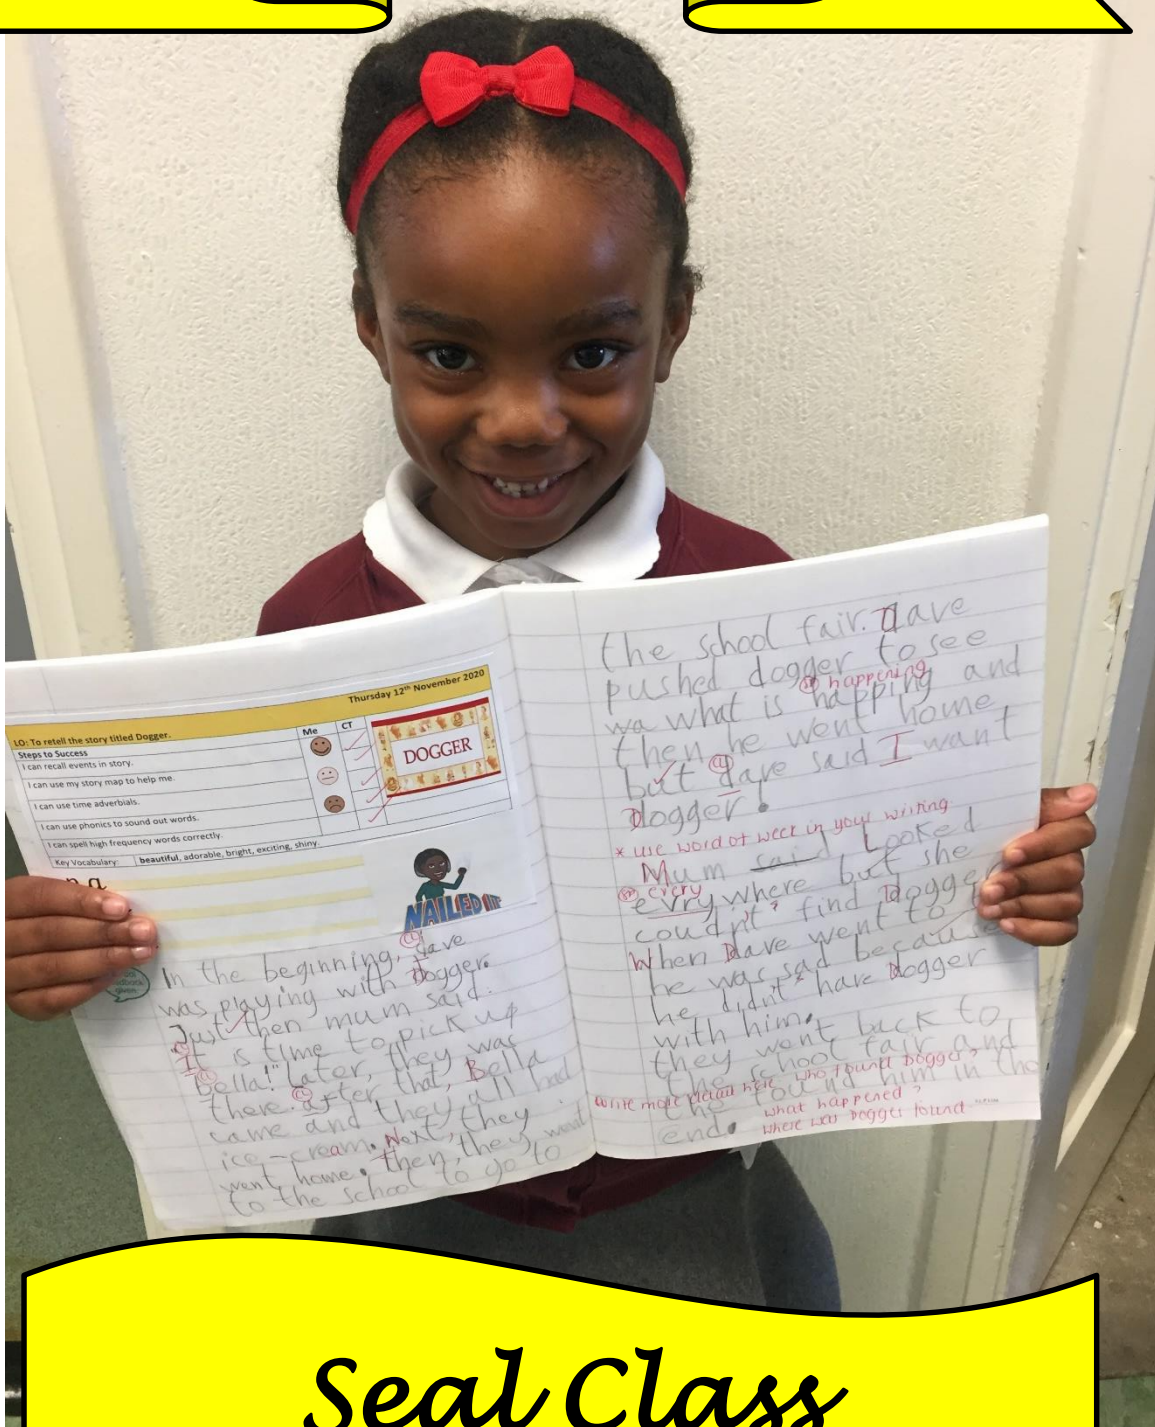 Thursday 12th November 2020
LO: To retell the story titled Dogger.
Steps to Success
Me
CT
I can recall events in story.
I can use my story map to help me.
I can use time adverbials.
I can use phonics to sound out words.
I can spell high frequency words correctly.
Key Vocabulary: beautiful, adorable, bright, exciting, shiny
DOGGER
NAILED IT!
In the beginning, dave
was playing with Dogger.
Just then mum said.
It is time to pick up
Bella!" Later, they was
there. after that, Bella
came and they all had
ice-cream. Next, they
went home. then, they went
to the school to go to
the school fair. Dave
pushed dogger to see
happening
wa what is happing and
then he went home
but dave said I want
Dogger!
* use word of week in your writing.
Mum said Looked
every
evry where but she
coudn't find Dogger
When Dave went to
he was sad because
he didn't have Dogger
with him.
they went back to
the school fair and
write more detail here who found Dogger?
he found him in the
what happened?
end.
where was Dogger found
Seal Class